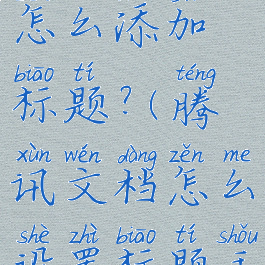 怎么添加
biāo tí téng
标题?(腾
xùn wén dàng zěn me
讯文档怎么
shè zhì biāo tí shǒu
设置标题